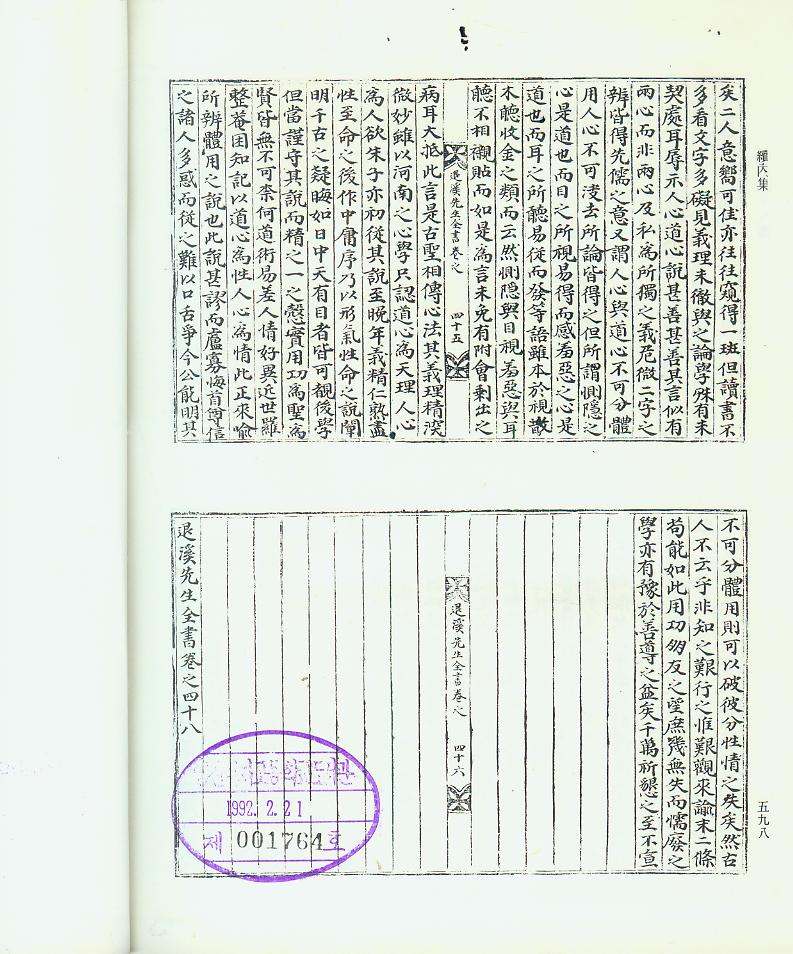 矣二人意嚮可佳亦往往窺得一班但讀書不
多看文字多礙見義理未徹與之論學殊有未
契處耳辱示人心道心說甚善甚善其言似有
兩心而非兩心及私爲所獨之義危微二字之
辨皆得先儒之意又謂人心與道心不可分體
用人心不可浚去所論皆得之但所謂惻隱之
心是道也而目之所視易得而感羞惡之心是
道也而耳之所聽易從而發等語雖本於視散
木聽收金之類而云然惻隱與目視羞惡與耳
聽不相襯貼而如是爲言未免有附會剩出之
退溪先生全書卷之 四十五
病耳大抵此言是古聖相傳心法其義理精深
微妙雖以河南之心學只認道心爲天理人心
爲人欲朱子亦初從其說至晚年義精仁熟盡
性至命之後作中庸序乃以形氣性命之說闡
明千古之疑晦如日中天有目者皆可覩後學
但當謹守其說而精之一之慤實用功爲聖爲
賢皆無不可柰何道術易差人情好異近世羅
整菴困知記以道心爲性人心爲情此正來喩
所辨體用之說也此說甚謬而盧寡悔首尊信
之諸人多惑而從之難以口舌爭今公能明其
不可分體用則可以破彼分性情之失矣然古
人不云乎非知之艱行之惟艱觀來諭末二條
苟能如此用功朋友之望庶幾無失而懦廢之
學亦有豫於善導之益矣千萬祈懇之至不宣
退溪先生全書卷之 四十六
退溪先生全書卷之四十八
續內集
五九八
1992. 2. 21
제 001764 호